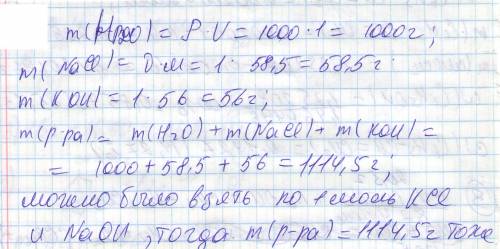 m(H₂O) = ρ · V = 1000 · 1 = 1000г;
m(NaCl) = ν · M = 1 · 58,5 = 58,5г.
m(KOH) = 1 · 56 = 56г;
m(р-ра) = m(H₂O) + m(NaCl) + m(KOH) =
= 1000 + 58,5 + 56 = 1114,5г;
можно было взять по 1 моль KCl
и NaOH, тогда m(р-ра) = 1114,5г тоже